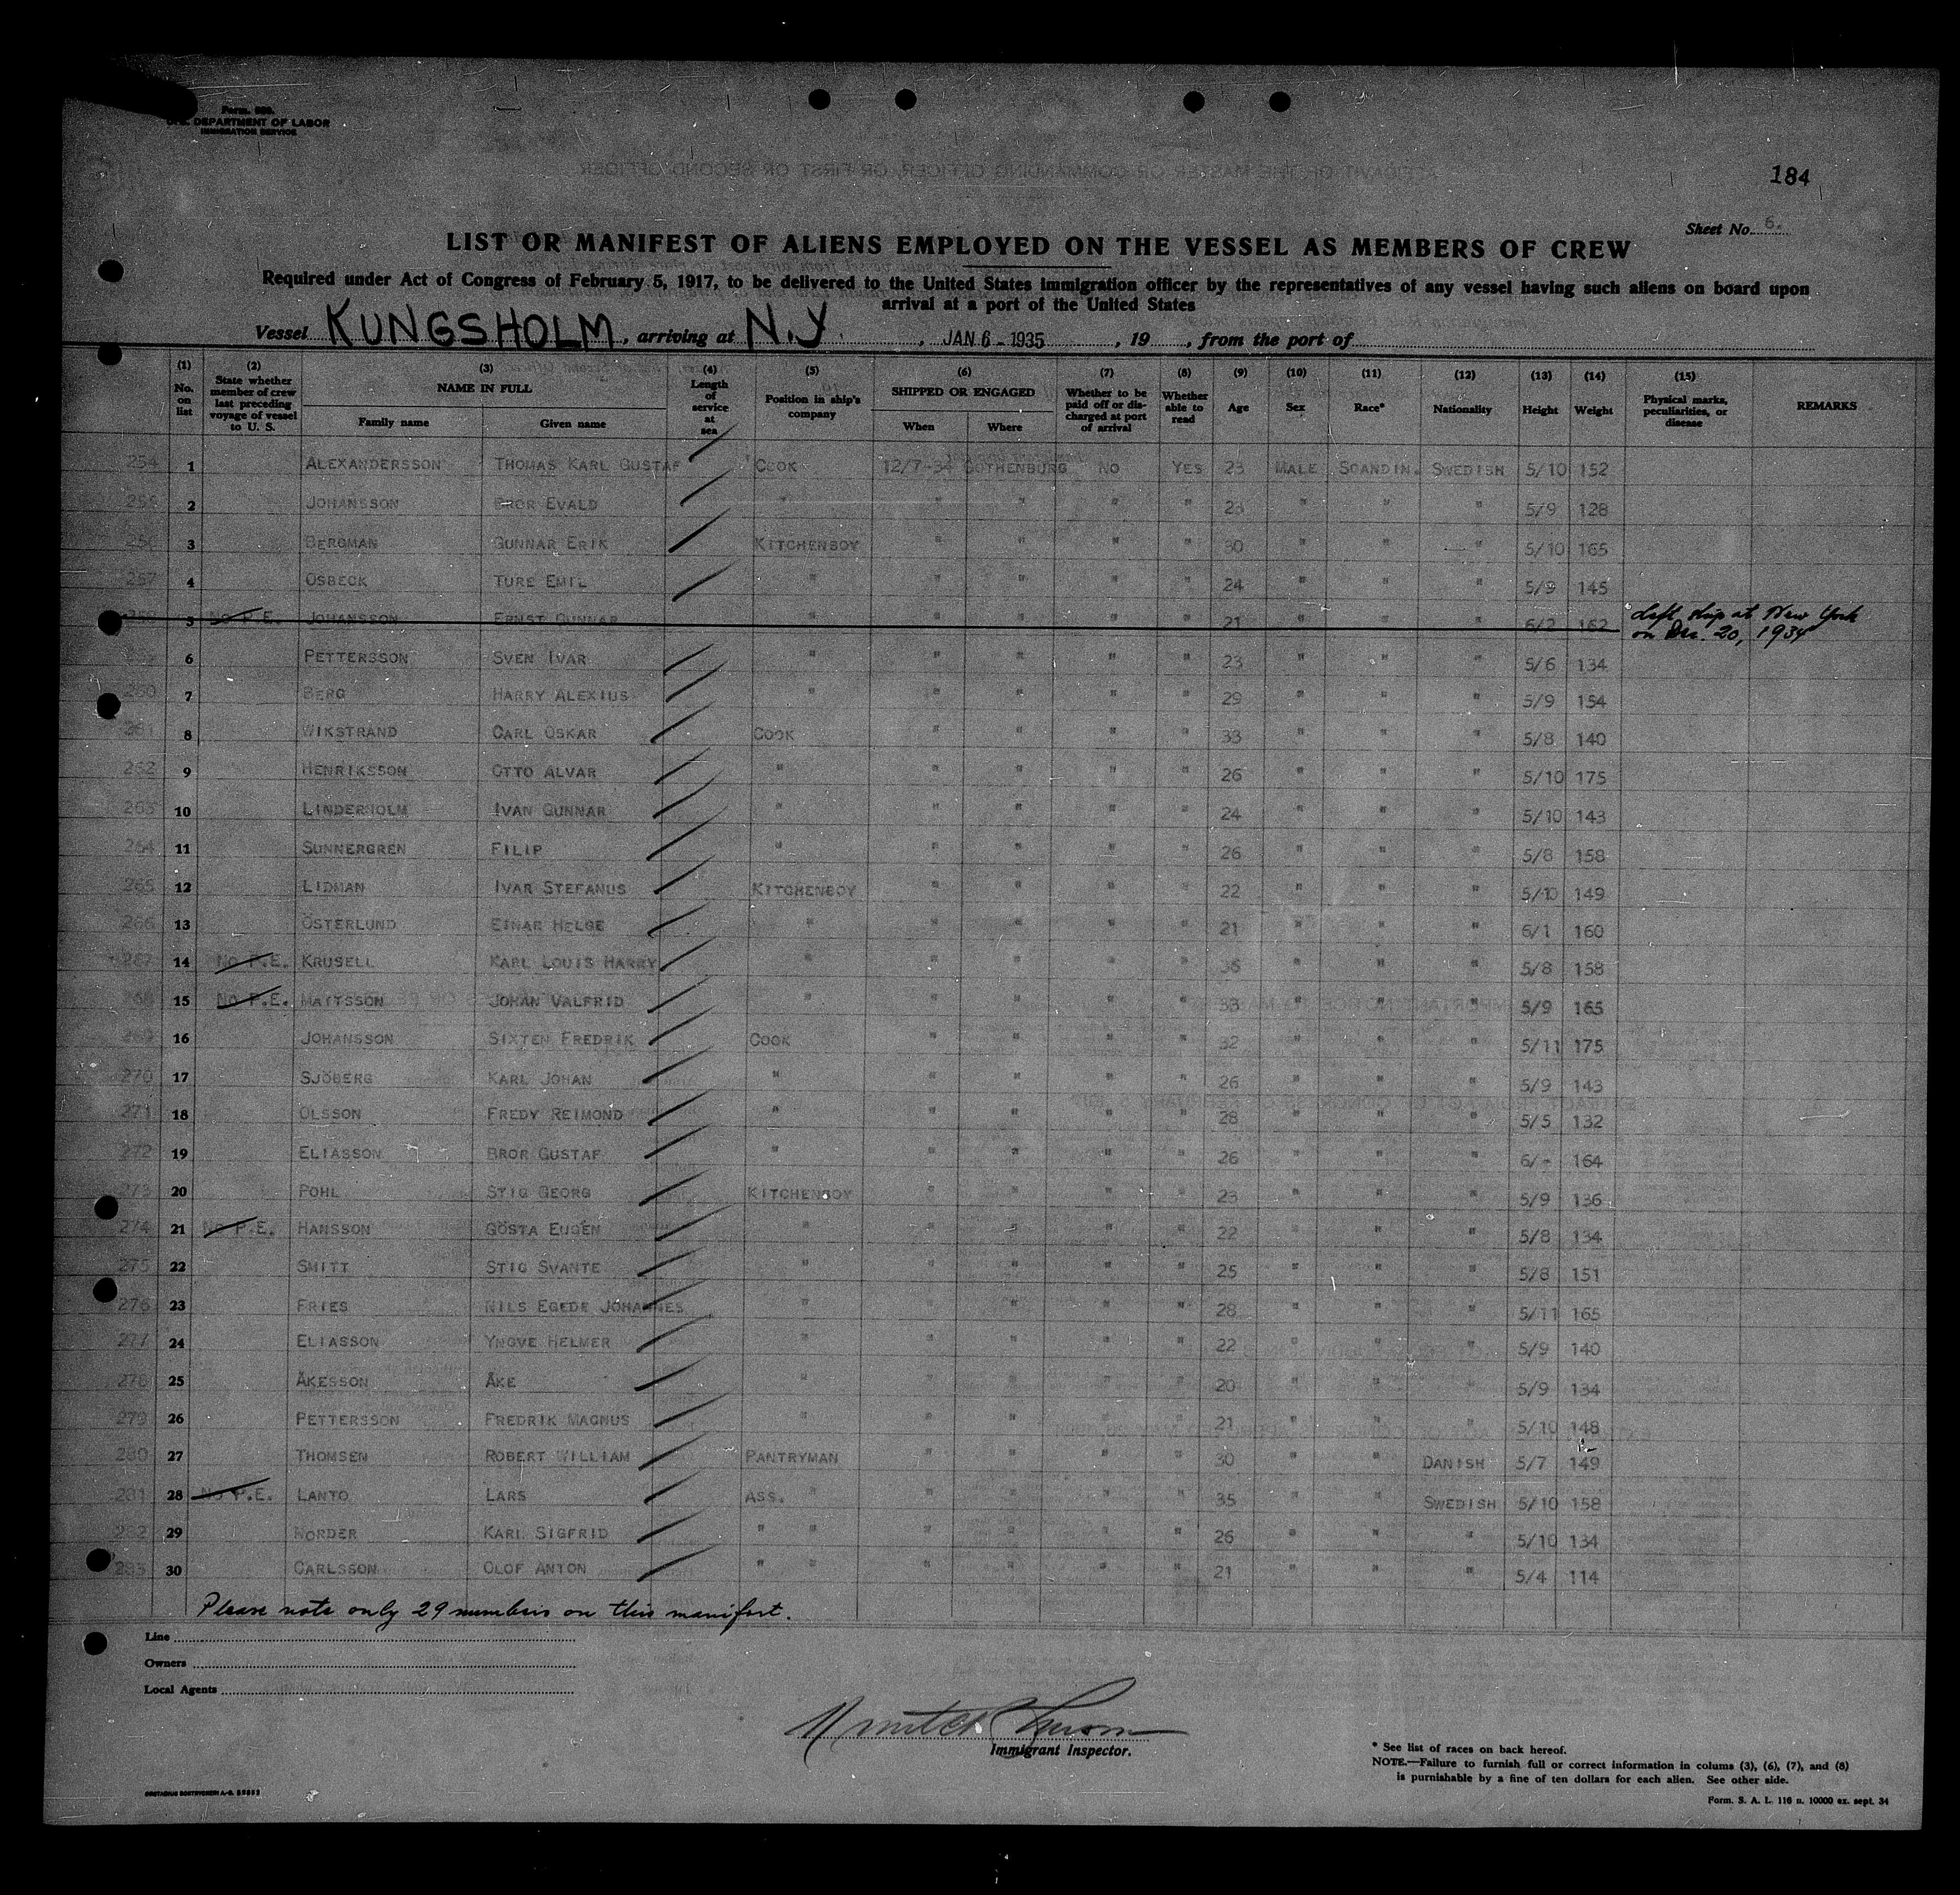 U.S. DEPARTMENT OF LABOR
IMMIGRATION SERVICE
184
Sheet No. 6.
LIST OR MANIFEST OF ALIENS EMPLOYED ON THE VESSEL AS MEMBERS OF CREW
Required under Act of Congress of February 5, 1917, to be delivered to the United States immigration officer by the representatives of any vessel having such aliens on board upon
arrival at a port of the United States
Vessel KUNGSHOLM, arriving at N.Y., JAN 6 - 1935, 19, from the port of
(1) No. on list (2) State whether member of crew last preceding voyage of vessel to U. S. (3) NAME IN FULL Family name Given name (4) Length of service at sea (5) Position in ship's company (6) SHIPPED OR ENGAGED When Where (7) Whether to be paid off or discharged at port of arrival (8) Whether able to read (9) Age (10) Sex (11) Race* (12) Nationality (13) Height (14) Weight (15) Physical marks, peculiarities, or disease REMARKS
254 1 ALEXANDERSSON THOMAS KARL GUSTAF COOK 12/7-34 GOTHENBURG NO YES 23 MALE SCANDIN. SWEDISH 5/10 152
255 2 JOHANSSON BROR EVALD " " " " " 23 " " " 5/9 128
256 3 BERGMAN GUNNAR ERIK KITCHENBOY " " " " 30 " " " 5/10 165
257 4 OSBECK TURE EMIL " " " " " 24 " " " 5/9 145
258 5 NO P.E. JOHANSSON ERNST GUNNAR " " " " " 21 " " " 6/2 162 Left ship at New York on Dec. 20, 1934
259 6 PETTERSSON SVEN IVAR " " " " " 23 " " " 5/6 134
260 7 BERG HARRY ALEXIUS " " " " " 29 " " " 5/9 154
261 8 WIKSTRAND CARL OSKAR COOK " " " " 33 " " " 5/8 140
262 9 HENRIKSSON OTTO ALVAR " " " " " 26 " " " 5/10 175
263 10 LINDERHOLM IVAN GUNNAR " " " " " 24 " " " 5/10 143
264 11 SUNNERGREN FILIP " " " " " 26 " " " 5/8 158
265 12 LIDMAN IVAR STEFANUS KITCHENBOY " " " " 22 " " " 5/10 149
266 13 ÖSTERLUND EINAR HELGE " " " " " 21 " " " 6/1 160
267 14 NO P.E. KRUSELL KARL LOUIS HARRY " " " " " 36 " " " 5/8 158
268 15 NO P.E. MATTSSON JOHAN VALFRID " " " " " 33 " " " 5/9 165
269 16 JOHANSSON SIXTEN FREDRIK COOK " " " " 32 " " " 5/11 175
270 17 SJÖBERG KARL JOHAN " " " " " 26 " " " 5/9 143
271 18 OLSSON FREDY REIMOND " " " " " 28 " " " 5/5 132
272 19 ELIASSON BROR GUSTAF " " " " " 26 " " " 6/- 164
273 20 POHL STIG GEORG KITCHENBOY " " " " 23 " " " 5/9 136
274 21 NO P.E. HANSSON GÖSTA EUGEN " " " " " 22 " " " 5/8 134
275 22 SMITT STIG SVANTE " " " " " 25 " " " 5/8 151
276 23 FRIES NILS EGEDE JOHANNES " " " " " 28 " " " 5/11 165
277 24 ELIASSON YNGVE HELMER " " " " " 22 " " " 5/9 140
278 25 ÅKESSON ÅKE " " " " " 20 " " " 5/9 134
279 26 PETTERSSON FREDRIK MAGNUS " " " " " 21 " " " 5/10 148
280 27 THOMSEN ROBERT WILLIAM PANTRYMAN " " " " 30 " " DANISH 5/7 149
281 28 NO P.E. LANTO LARS ASS. " " " " " 35 " " SWEDISH 5/10 158
282 29 NORDER KARL SIGFRID " " " " " " 26 " " " 5/10 134
283 30 CARLSSON OLOF ANTON " " " " " " 21 " " " 5/4 114
Please note only 29 members on this manifest.
Line
Owners
Local Agents
Immigrant Inspector.
* See list of races on back hereof.
NOTE.—Failure to furnish full or correct information in colums (3), (6), (7), and (8)
is purnishable by a fine of ten dollars for each alien. See other side.
Form. S. A. L. 116 n. 10000 ex. sept. 34